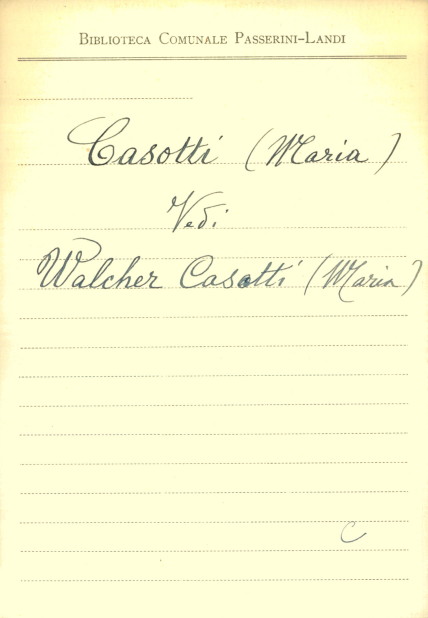 BIBLIOTECA COMUNALE PASSERINI-LANDI
Casotti (Maria)
Vedi
Walcher Casotti (Maria)
C